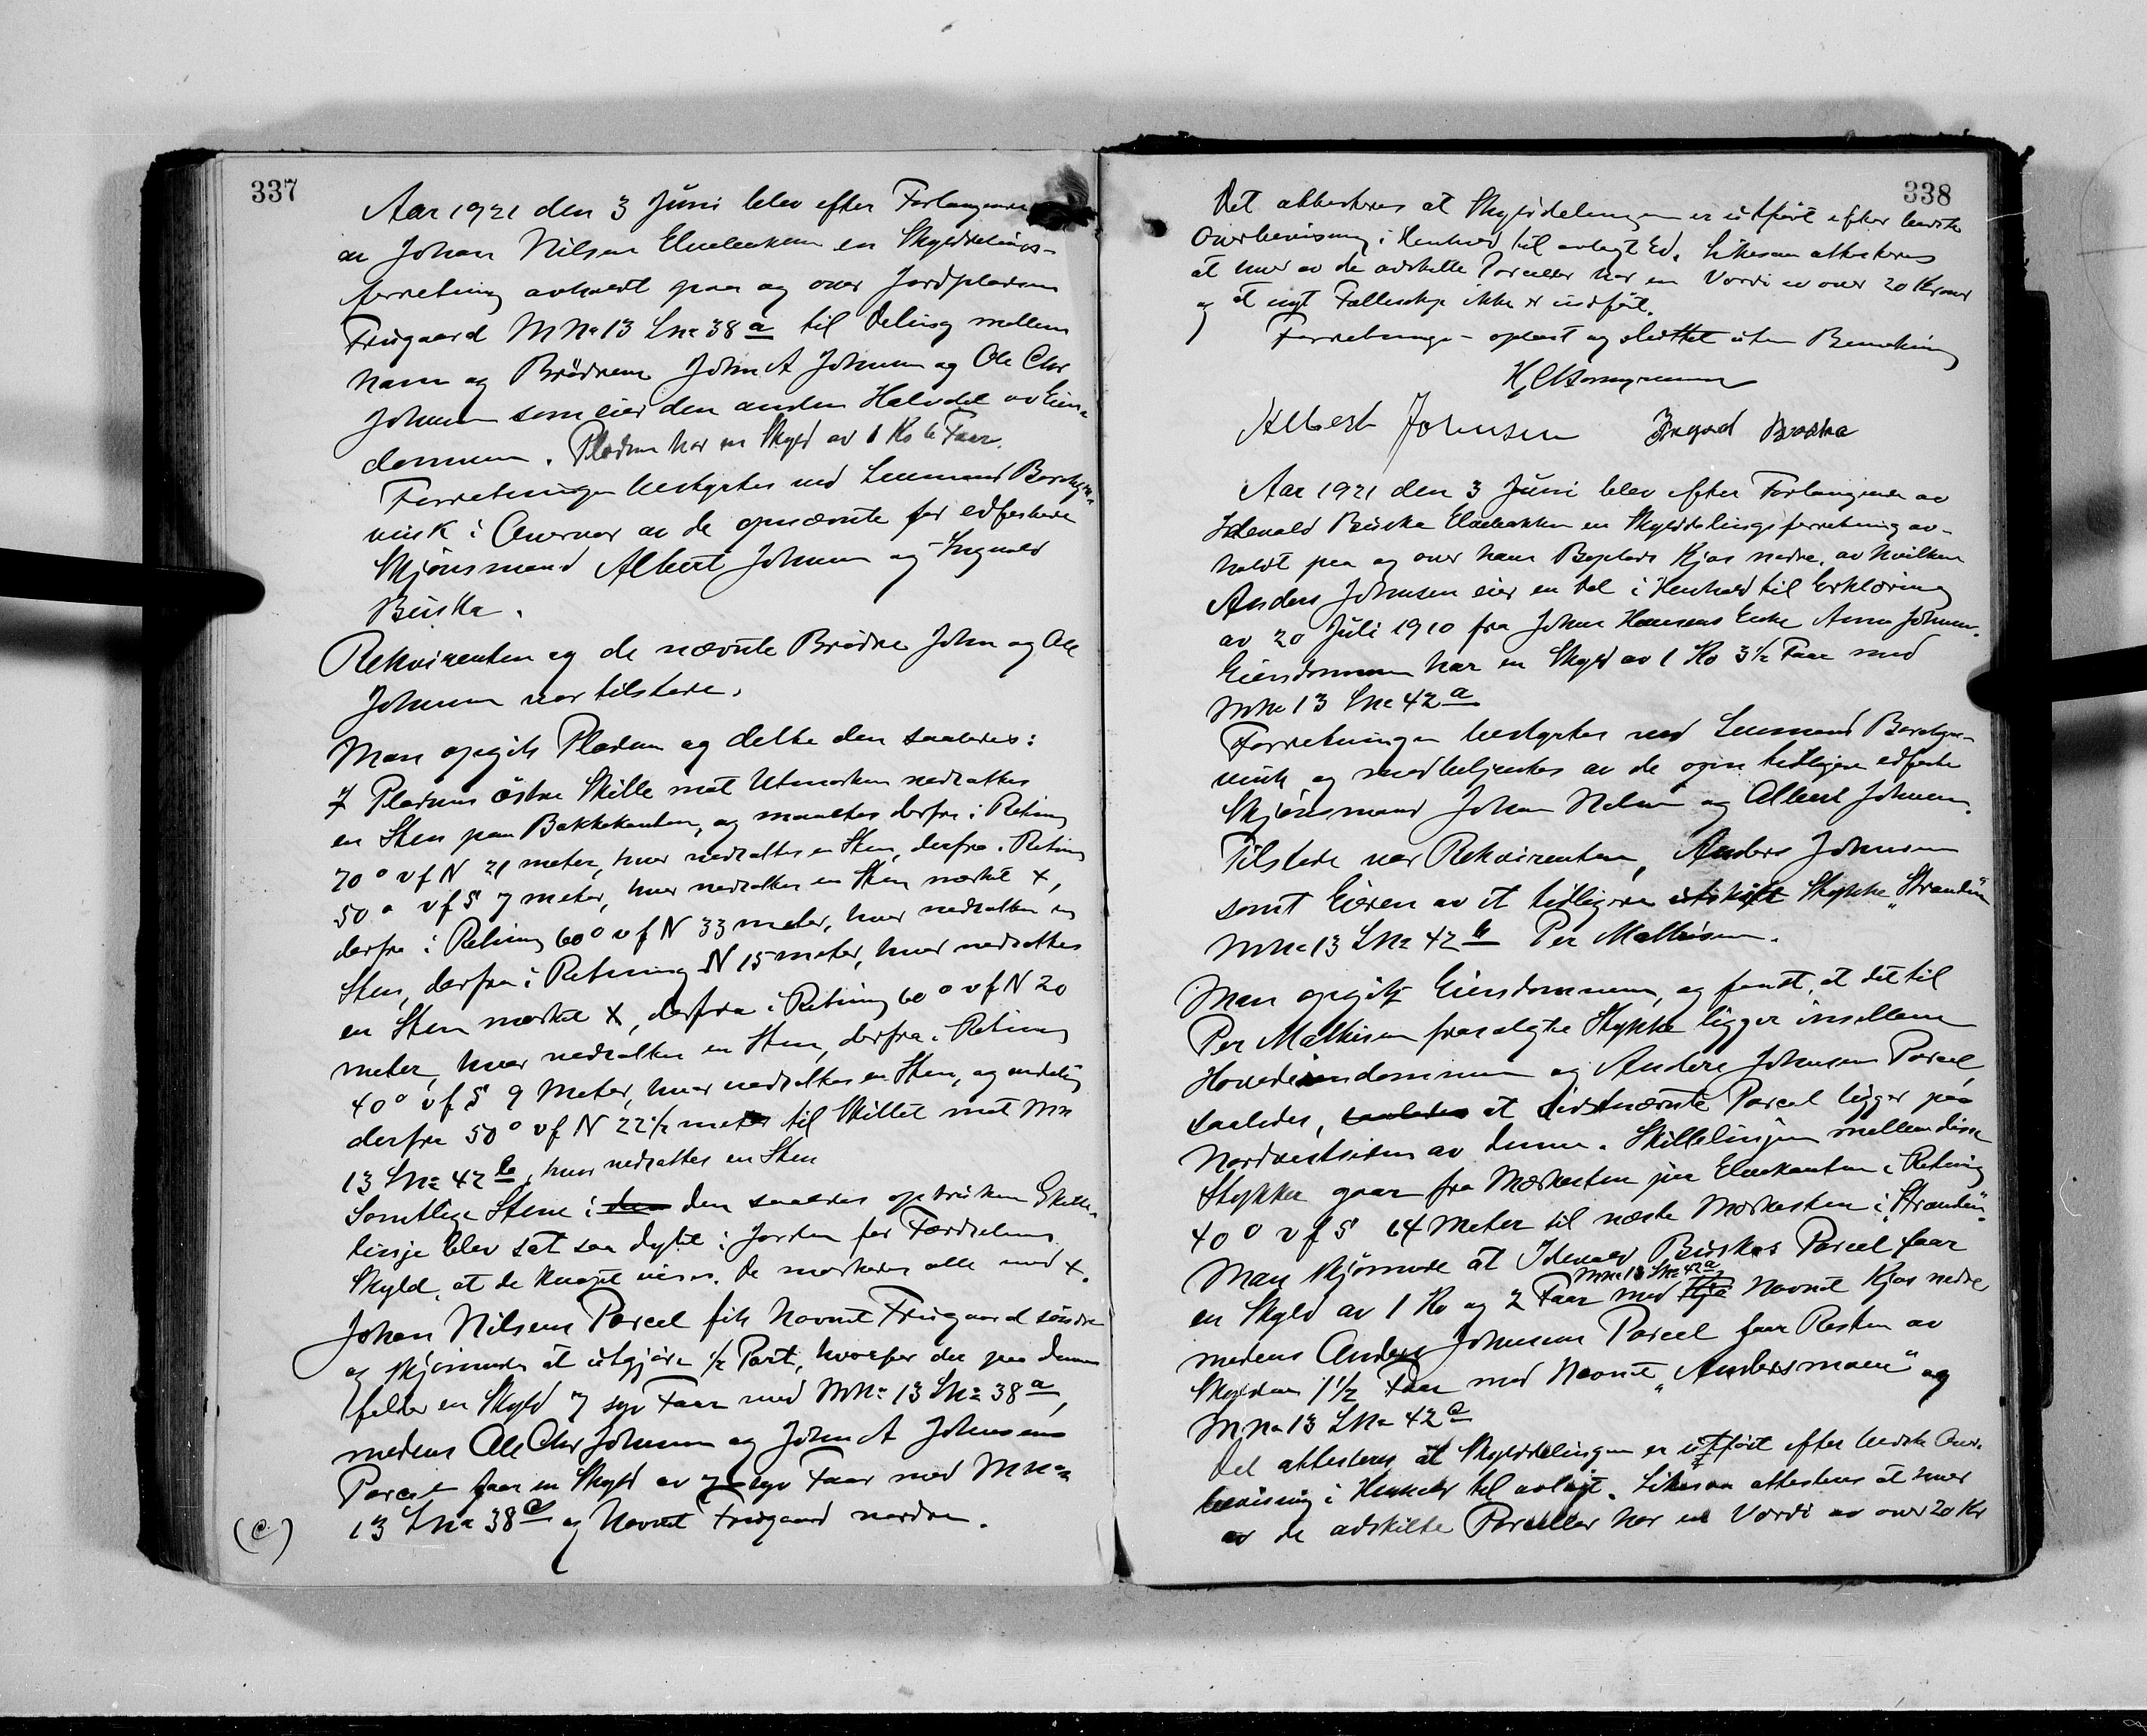 337
Aar 1921 den 3 Juni blev efter Forlangende
av Johan Nilsen Elvebakken en Skylddelings-
forretning avholdt paa og over Jordpladsen
Frugaard M No 13 L No 38 a til Deling mellem
ham og Brødrene John A Johnsen og Ole Chr
Johnsen som eier den anden Halvdel av Eien-
dommen. Pladsen har en Skyld av 1 Ko 6 Faar.
Forretningen bestyrtes ved Lensmand
i Overvær av de opnævnte før edfestede
Skjønsmænd Albert Johnsen og Ingvald
Buska.
Rekvirenten og de nævnte Brødre John og Ole
Johnsen var tilstede.
Man opgik Pladsen og delte den saaledes:
I Pladsens østre Skille mot Utmarken nedsattes
en Sten paa Bakkekanten, og maaltes derfra i Retning
70° v f N 21 meter, hvor nedsattes en Sten, derfra i Retning
50° v f S 7 meter, hvor nedsattes en Sten merket X,
derfra i Retning 60° v f N 33 meter, hvor nedsattes en
Sten, derfra i Retning N 15 meter, hvor nedsattes
en Sten merket X, derfra i Retning 60° v f N 20
meter, hvor nedsattes en Sten, derfra i Retning
40° v f S 9 Meter, hvor nedsattes en Sten, og endelig
derfra 50° v f N 22½ meter til Skillet mot M No
13 L No 42 b, hvor nedsattes en Sten
Samtlige Stene i den den saaledes optrukne Skille-
linje blev sat saa dypt i Jorden for Færdselens
Skyld, at de knapt vises. De merkedes alle med X.
Johan Nilsens Parcel fik Navnet Frugaard søndre
og skjønnedes at utgjøre ½ Part, hvorfor der paa denne
falder en Skyld 7 syv Faar med M No 13 L No 38 a,
medens Ole Chr Johnsen og John A Johnsens
Parcel faar en Skyld av 7 syv Faar med M No
13 L No 38 c og Navnet Frugaard nordre.
(c)
338
Det attesteres at Skylddelingen er utført efter bedste
Overbevisning i Henhold til avlagt Ed. Likesaa attesteres
at hver av de adskilte Parceller har en Værdi av over 20 Kroner
og at nyt Fællesskap ikke er indført.
Forretningen oplæst og sluttet uten Bemerkning
Albert Johnsen Ingvald Buska
Aar 1921 den 3 Juni blev efter Forlangende av
Idevald Buska Elvebakken en Skylddelingsforretning av-
holdt paa og over hans Boplads Kjøs nedre, av hvilken
Anders Johnsen eier en Del i Henhold til Erklæring
av 20 Juli 1910 fra Johan Hansens Enke Anna Johnsen.
Eiendommen har en Skyld av 1 Ko 3½ Faar med
M No 13 L No 42 a
Forretningen bestyrtes ved Lensmand
og medbetjentes av de opn tidligere edfeste
Skjønsmænd Johan Nilsen og Albert Johnsen.
Tilstede var Rekvirenten, Anders Johnsen
samt Eieren av et tidligere utskilt Stykke "Stranden"
M No 13 L No 42 b Per Mathisen.
Man opgik Eiendommen, og fandt, at det til
Per Mathisen frasolgte Stykke ligger imellem
Hovedeiendommen og Anders Johnsens Parcel,
saaledes, saaledes at sidstnævnte Parcel ligger paa
Nordvestsiden av denne. Skillelinjen mellem disse
Stykker gaar fra Merkesten paa Elvekanten i Retning
40° v f S 64 Meter til næste Merkesten i "Stranden".
Man skjønnede at Idevald Buskas Parcel faar
M No 13 L No 42 a
en Skyld av 1 Ko og 2 Faar med Navnet Kjøs nedre
medens Anders Johnsens Parcel faar Resten av
Skylden 1½ Faar med Navnet "Andersmoen" og
M No 13 L No 42 c
Det attesteres at Skylddelingen er utført efter bedste Over-
bevisning i Henhold til avlagt. Likesaa attesteres at hver
av de adskilte Parceller har en Værdi av over 20 Kr